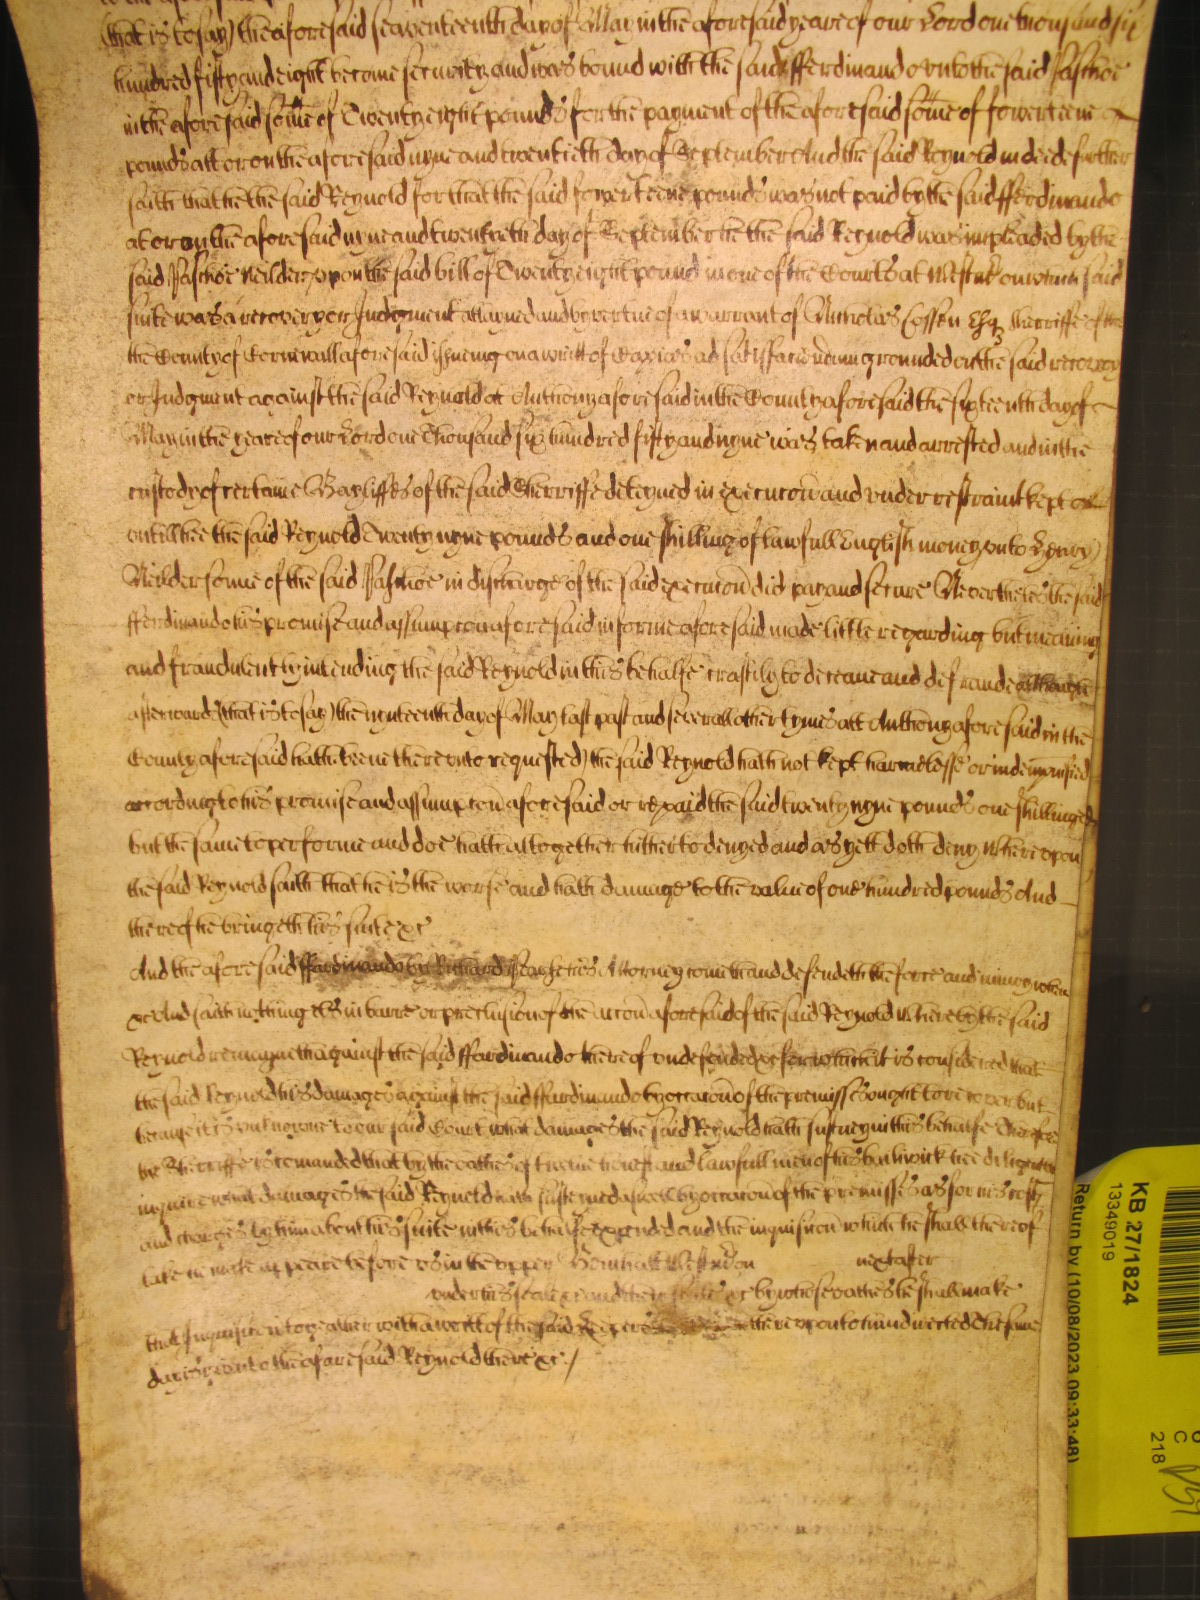 (that is to say) the aforesaid seaventeenth day of May in the aforesaid yeare of our Lord one thousand six
hundred fifty and eight become security and was bound with the said Fferdinando unto the said Jasthoe
in the aforesaid some of Twenty eight pounds for the payment of the aforesaid some of fowerteene
pounds att or on the aforesaid nyne and twentieth day of September And the said Reynold indeede further
saith that he the said Reynold for that the said fowerteene pounds was not paid by the said Fferdinando
at or on the aforesaid nyne and twentyeth day of September he the said Reynold was impleaded by the
said Jasthoe Neilder upon the said bill of Twenty eight pound in one of the Courts at Westmr on which said
suite was a recovery or Judgment attayned and by vertue of a warrant of Nicholas Cossen Esq Sherriffe of the
the County of Cornewall aforesaid issueing on a writt of Capias ad satisfaciendum grounded on the said recovery
or Judgment against the said Reynold at Anthony aforesaid in the County aforesaid the sixteenth day of
May in the yeare of our Lord one Thousand six hundred fifty and nyne was taken and arrested and in the
custody of certaine Bayliffes of the said Sherriffe deteyned in execucon and under restraint kept
untill hee the said Reynold Twenty nyne pounds and one shilling of lawfull English money unto Henry
Neilder sonne of the said Jasthoe in discharge of the said execucon did pay and secure Nevertheles the said
Fferdinando his promise and assumpcon aforesaid in forme aforesaid made little regarding but meaning
and fraudulently intending the said Reynold in this behalfe craftily to deceave and defraude although
afterwards (that is to say) the nynteenth day of May last past and severall other tymes att Anthony aforesaid in the
County aforesaid hath beene thereunto requested) the said Reynold hath not kept harmelesse or indempnified
according to his promise and assumpcon aforesaid or repaid the said twenty nyne pounds one shillinge
but the same to performe and doe hath altogether hitherto denyed and as yett doth deny Whereupon
the said Reynold saith that he is the worse and hath damage to the value of one hundred pounds And
thereof he bringeth his suite &c
And the aforesaid Ffardinando by Richard his Attorney cometh and defendeth the force and injury when
&c And saith nothing els in barre or preclusion of the accon aforesaid of the said Reynold Whereby the said
Reynold remayneth against the said Ffardinando thereof undefended &c for which it is considered that
the said Reynold his damages against the said Ffardinando by occacon of the premisses ought to recover but
because it is unknowne to our said Court what damages the said Reynold hath susteyn in this behalfe Therefore
the Sherriffe is comanded that by the oathes of twelve honest and lawfull men of his bailiwick hee diligently
inquire what damages the said Reynold hath susteyned aswell by occacon of the premisses as for his costs
and charges by him about his suite in this behalfe expended and the inquisicon which he shall thereof
take he make appeare before us in the upper Bench att Westmr on next after
under his seale &c and the seales &c by whose oathes he shall make
that Inquisicon togeather with a writt of the said thereupon to him directed The same
day is given to the aforesaid Reynold there &c /
KB 27/1824
13349019
Return by (10/08/2023 09:33:48)
C
218